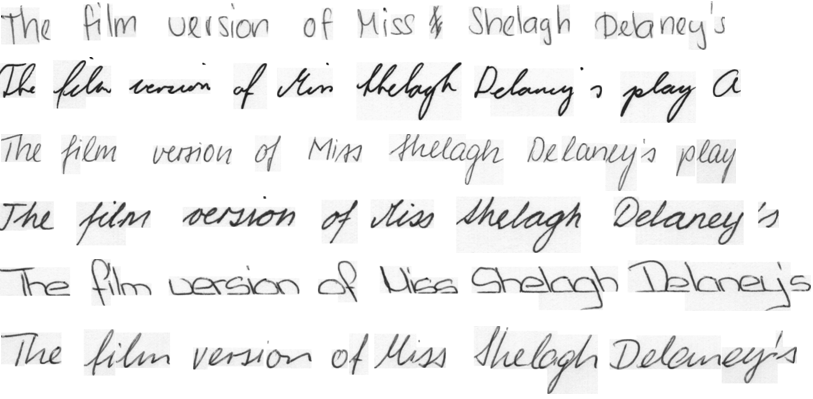 The film version of Miss Shelagh Delaney's
The film version of Miss Shelagh Delaney's play A
The film version of Miss Shelagh Delaney's play
The film version of Miss Shelagh Delaney's
The film version of Miss Shelagh Delaney's
The film version of Miss Shelagh Delaney's